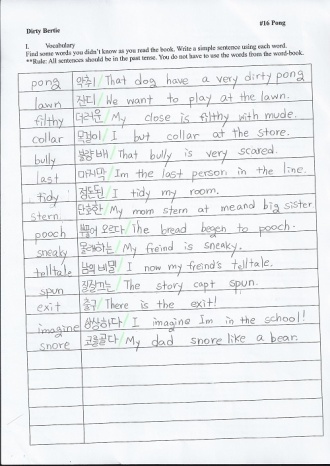 #16 Pong
Dirty Bertie
I. Vocabulary
Find some words you didn't know as you read the book. Write a simple sentence using each word.
**Rule: All sentences should be in the past tense. You do not have to use the words from the word-book.
pong 악취/ That dog have a very dirty pong
lawn 잔디/ We want to play at the lawn.
filthy 더러운/ My close is filthy with mude.
collar 목걸이/ I but collar at the store.
bully 불량배/ That bully is very scared.
last 마지막/ Im the last person in the line.
tidy 정돈된/ I tidy my room.
stern 단호한/ My mom stern at me and big sister
pooch 부풀어 오르다/ The bread begen to pooch.
sneaky 몰래하는/ My freind is sneaky.
telltale / I now my freind's telltale.
spun / The story capt spun.
exit 출구/ There is the exit!
imagine 상상하다/ I imagine Im in the school!
snore 코를골다/ My dad snore like a bear.